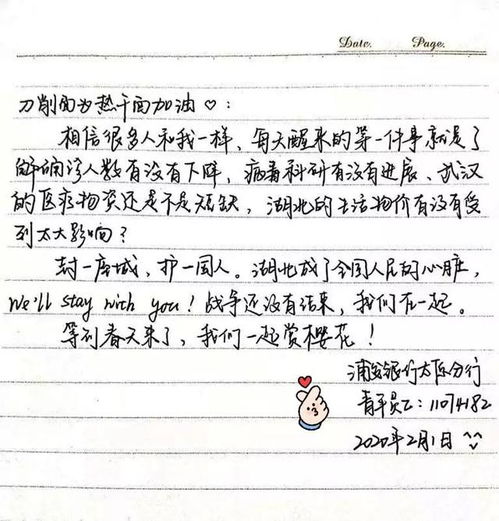 Date.    Page.
刀削面为热干面加油♡:
相信很多人和我一样，每天醒来的第一件事就是了
解确诊人数有没有下降，病毒科研有没有进展、武汉
的医疗物资还是不是短缺，湖北的生活物价有没有受
到太大影响？
封一座城，护一国人。湖北成了全国人民的心脏，
We'll stay with you！战争还没有结束，我们在一起。
等到春天来了，我们一起赏樱花！
浦发银行太原分行
青年员工：11074182
2020年2月1日